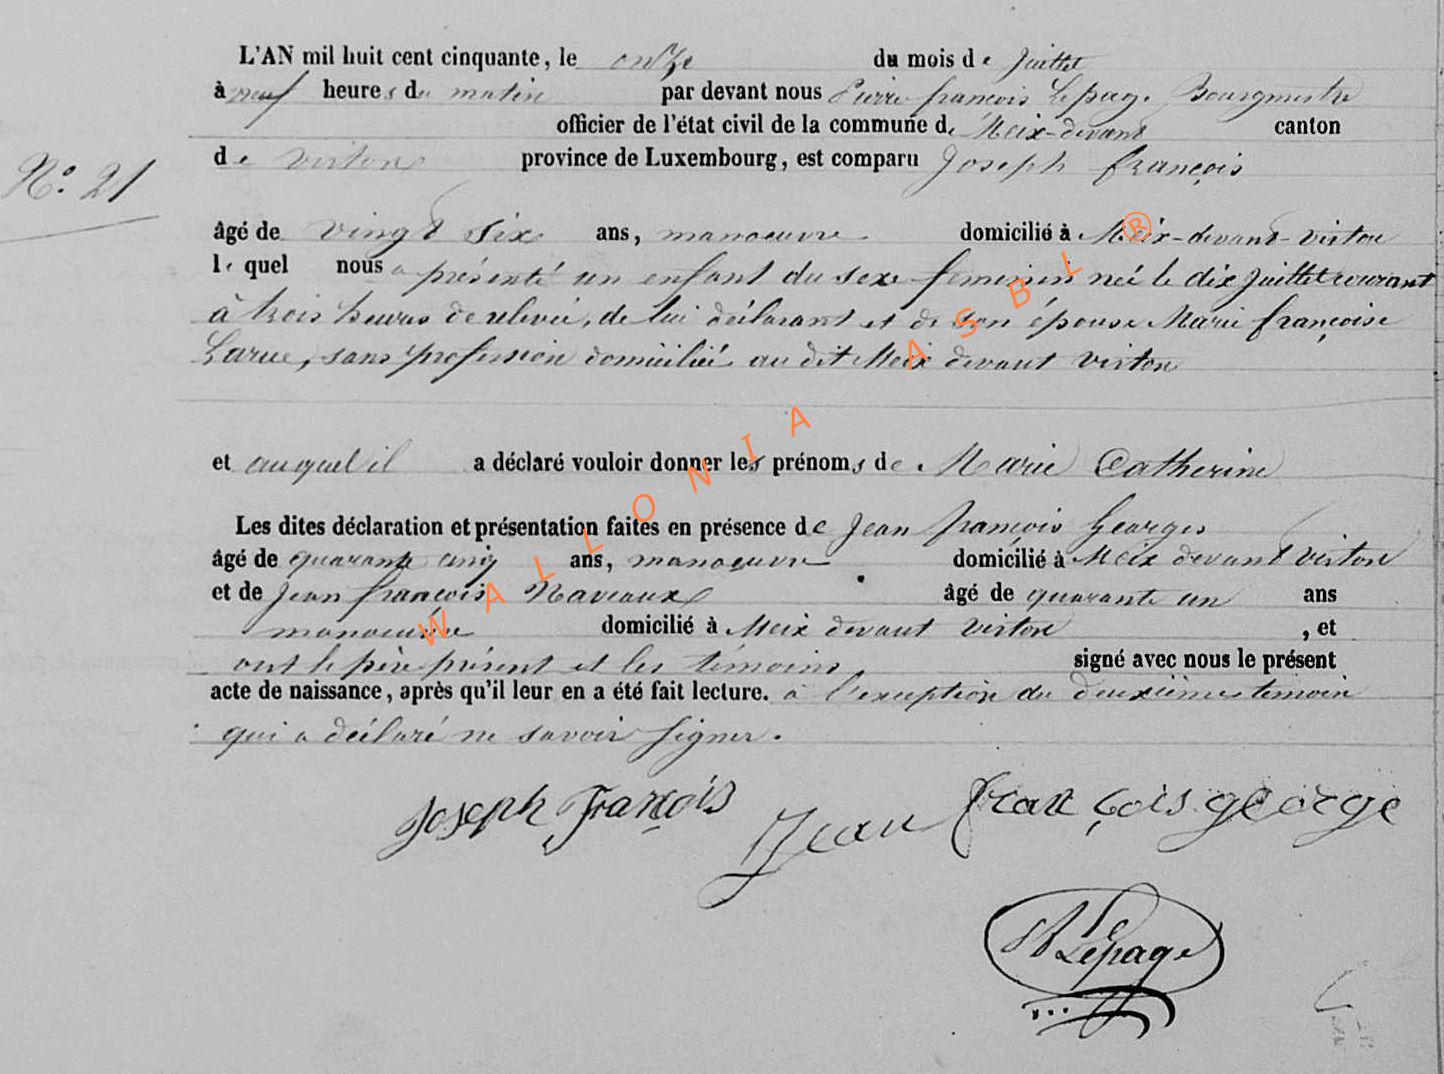 L'AN mil huit cent cinquante, le onze du mois de Juillet
à neuf heures du matin par devant nous Pierre françois Lepage Bourgmestre
officier de l'état civil de la commune de Meix-devant canton
de virton province de Luxembourg, est comparu Joseph françois
N° 21
âgé de vingt six ans, manoeuvre domicilié à Meix-devant-virton
le quel nous a présenté un enfant du sexe feminin neé le dix Juillet courant
à trois heures de relevée, de lui déclarant et de son épouse Marie françoise
Larue, sans profession domiciliée au dit Meix devant virton
et auquel il a déclaré vouloir donner les prénoms de Marie Catherine
Les dites déclaration et présentation faites en présence de Jean françois Georges
âgé de quarante cinq ans, manoeuvre domicilié à Meix devant virton
et de Jean françois Naveaux âgé de quarante un ans
manoeuvre domicilié à Meix devant virton , et
ont le père présent et les témoins signé avec nous le présent
acte de naissance, après qu'il leur en a été fait lecture. à l'exception du deuxième temoin
qui a déclaré ne savoir signer.
Joseph François Jean françois george
Lepage
WALLONIA ASBL ®